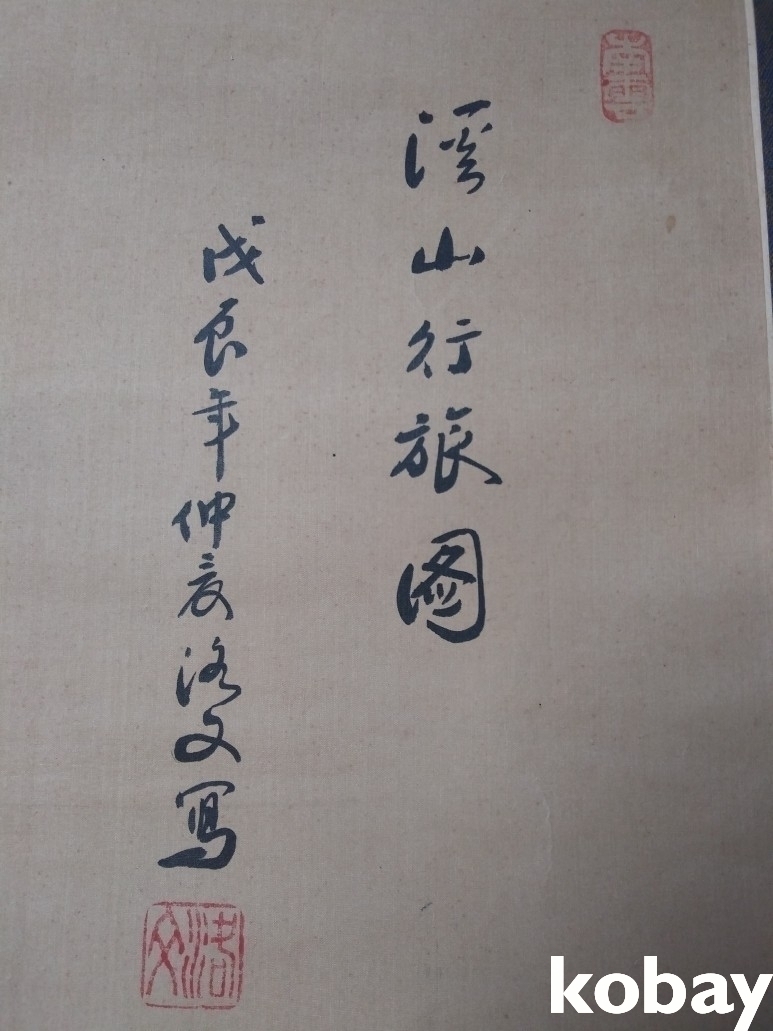 溪山行旅图
戊辰年仲夏洛文寫
洛文
kobay